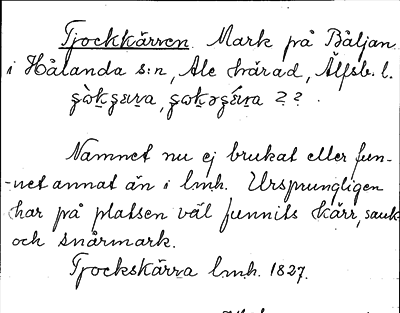 Tjockkärren. Mark på Båljan
i Hålanda s:n, Ale härad, Älfsb. l.
? ?
Namnet nu ej brukat eller fun-
-net annat än i lmh. Ursprungligen
har på platsen väl funnits kärr, sank
och snårmark.
Tjockskärra lmh. 1827.